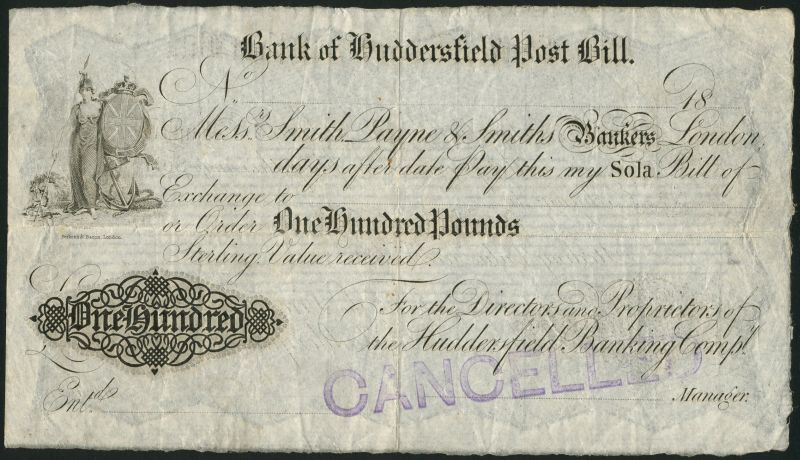 Bank of Huddersfield Post Bill.
No 18
Messrs Smith Payne & Smiths Bankers London,
days after date Pay this my Sola Bill of
Exchange to
or Order One Hundred Pounds
Perkins & Bacon, London.
Sterling Value received.
£ One Hundred
For the Directors and Proprietors of
the Huddersfield Banking Compy.
CANCELLED
Entd. Manager.